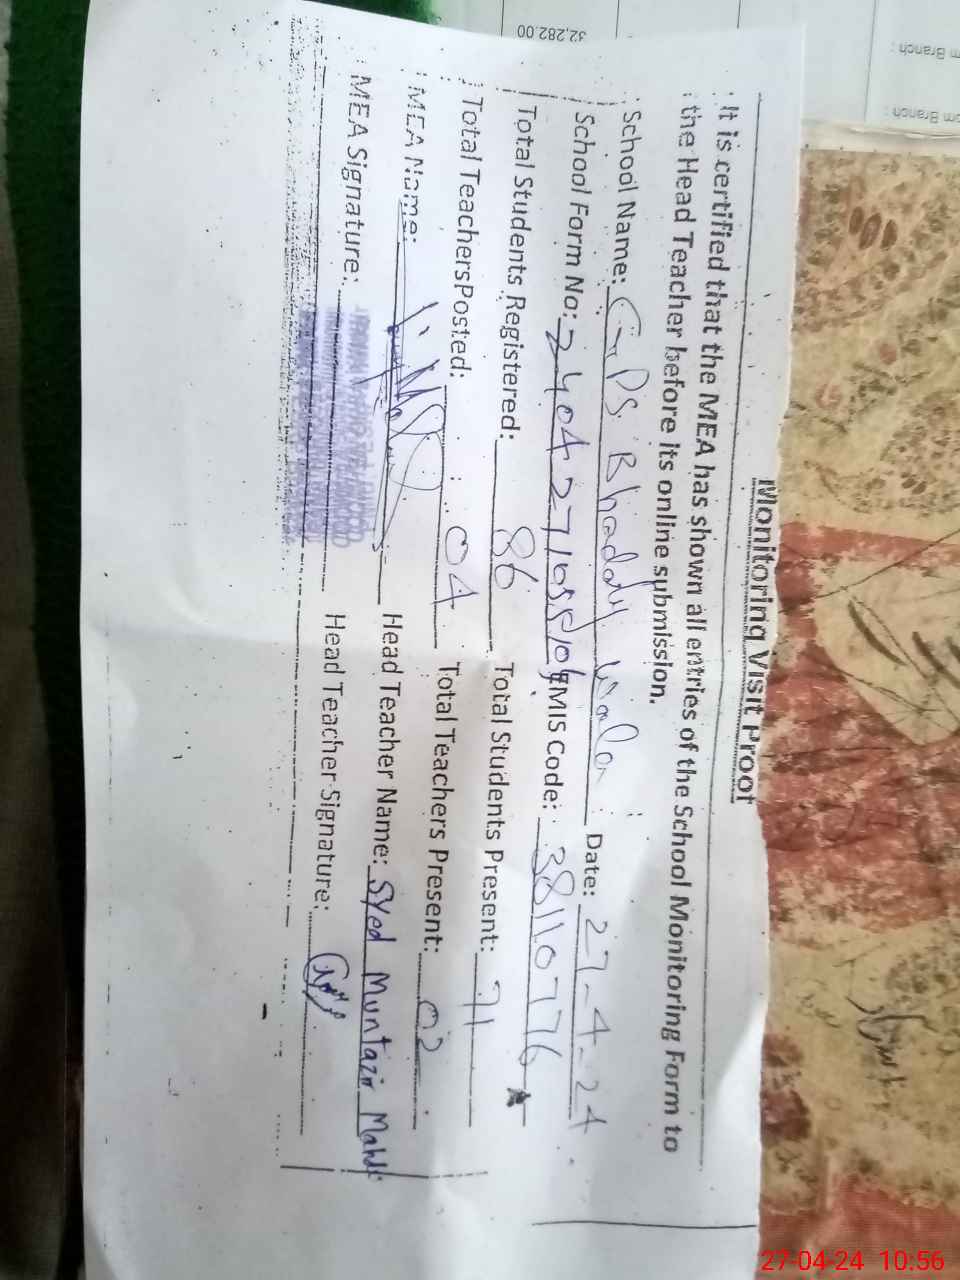 Monitoring Visit Proof
It is certified that the MEA has shown all entries of the School Monitoring Form to
the Head Teacher before its online submission.
School Name: GPS Bhaddy wala Date: 27-4-24
School Form No: EMIS Code: 38110776
Total Students Registered: 86 Total Students Present: 71
Total Teachers Posted: 04 Total Teachers Present: 02
MEA Name: Head Teacher Name: Syed Muntazir Mahdi
MEA Signature: Head Teacher Signature:
32,282.00
m Branch :
om Branch :
27-04-24 10:56